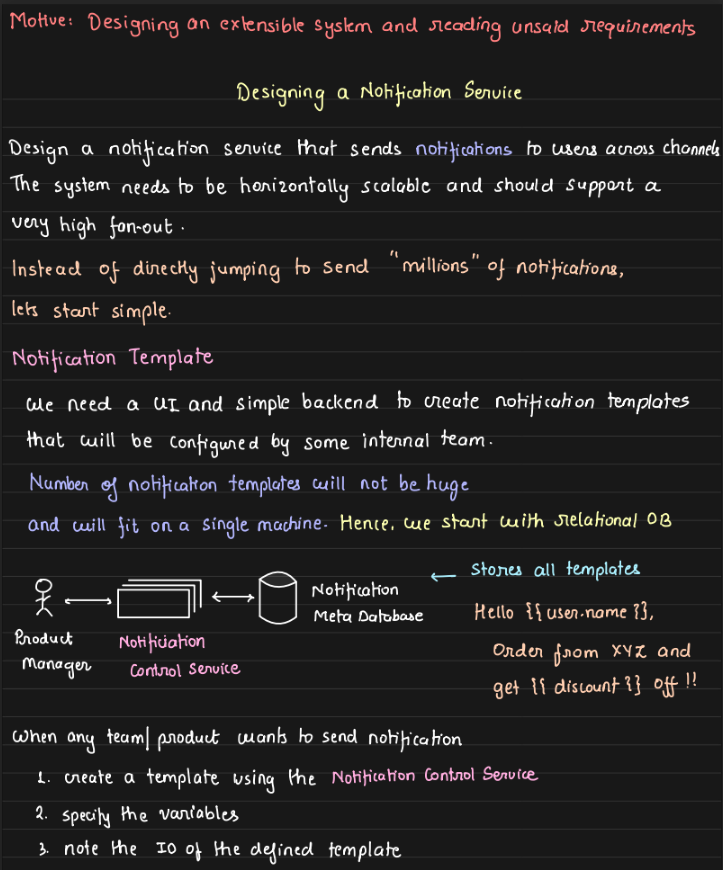 Motive: Designing an extensible system and reading unsaid requirements
Designing a Notification Service
Design a notification service that sends notifications to users across channels
The system needs to be horizontally scalable and should support a
very high fan-out.
Instead of directly jumping to send "millions" of notifications,
lets start simple.
Notification Template
We need a UI and simple backend to create notification templates
that will be configured by some internal team.
Number of notification templates will not be huge
and will fit on a single machine. Hence, we start with relational DB
Product
Manager
Notification
Control Service
Notification
Meta Database
← Stores all templates
Hello {{user.name}},
Order from XYZ and
get {{discount}} off!!
When any team/product wants to send notification
1. create a template using the Notification Control Service
2. specify the variables
3. note the ID of the defined template